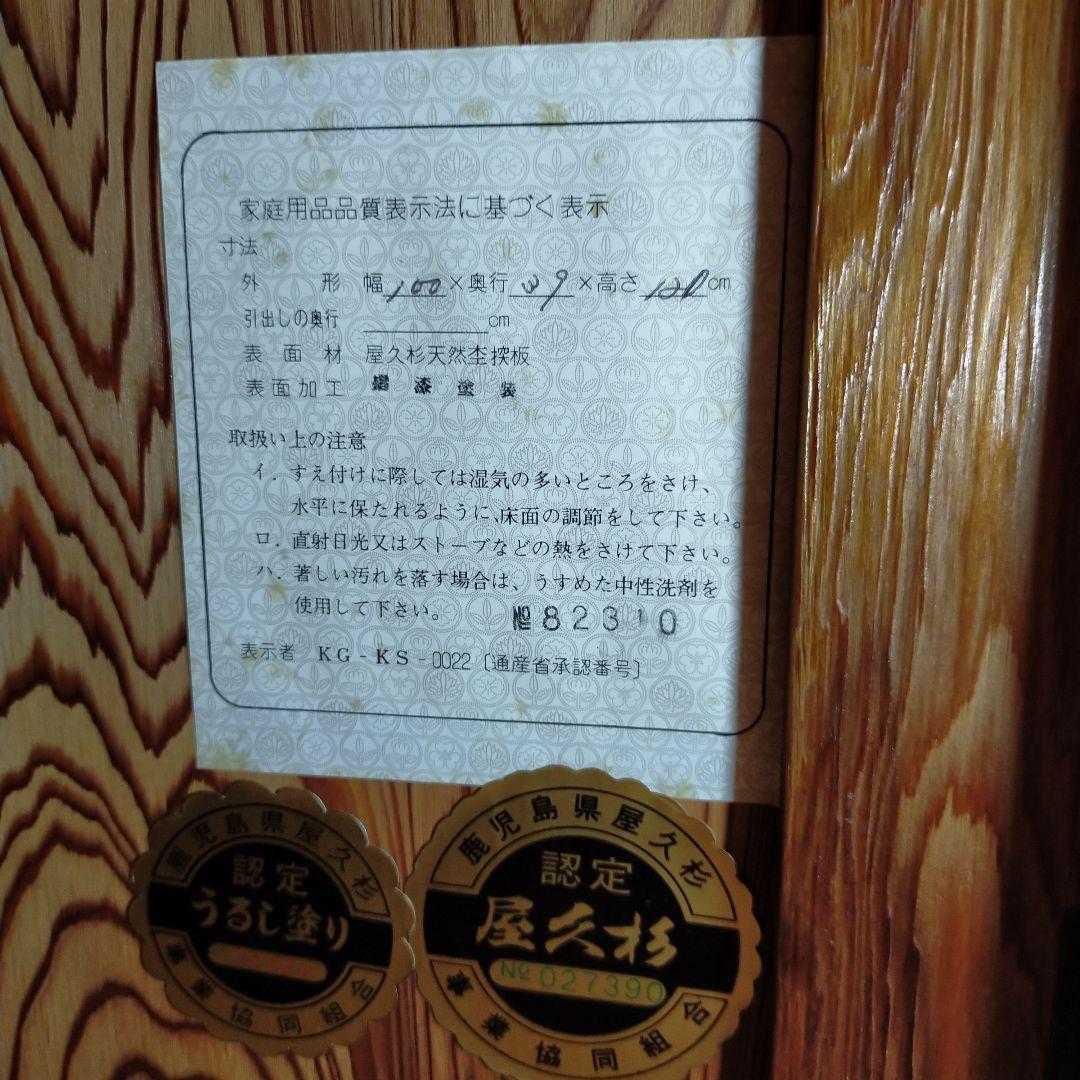 家庭用品品質表示法に基づく表示
寸法
外形 幅100×奥行39×高さ120cm
引出しの奥行 cm
表面材 屋久杉天然杢挾板
表面加工 摺漆塗装
取扱い上の注意
イ. すえ付けに際しては湿気の多いところをさけ、
水平に保たれるように、床面の調節をして下さい。
ロ. 直射日光又はストーブなどの熱をさけて下さい。
ハ. 著しい汚れを落す場合は、うすめた中性洗剤を
使用して下さい。
№82310
表示者 KG-KS-0022〔通産省承認番号〕
鹿児島県屋久杉
認定
うるし塗り
事業協同組合
鹿児島県屋久杉
認定
屋久杉
№027390
事業協同組合